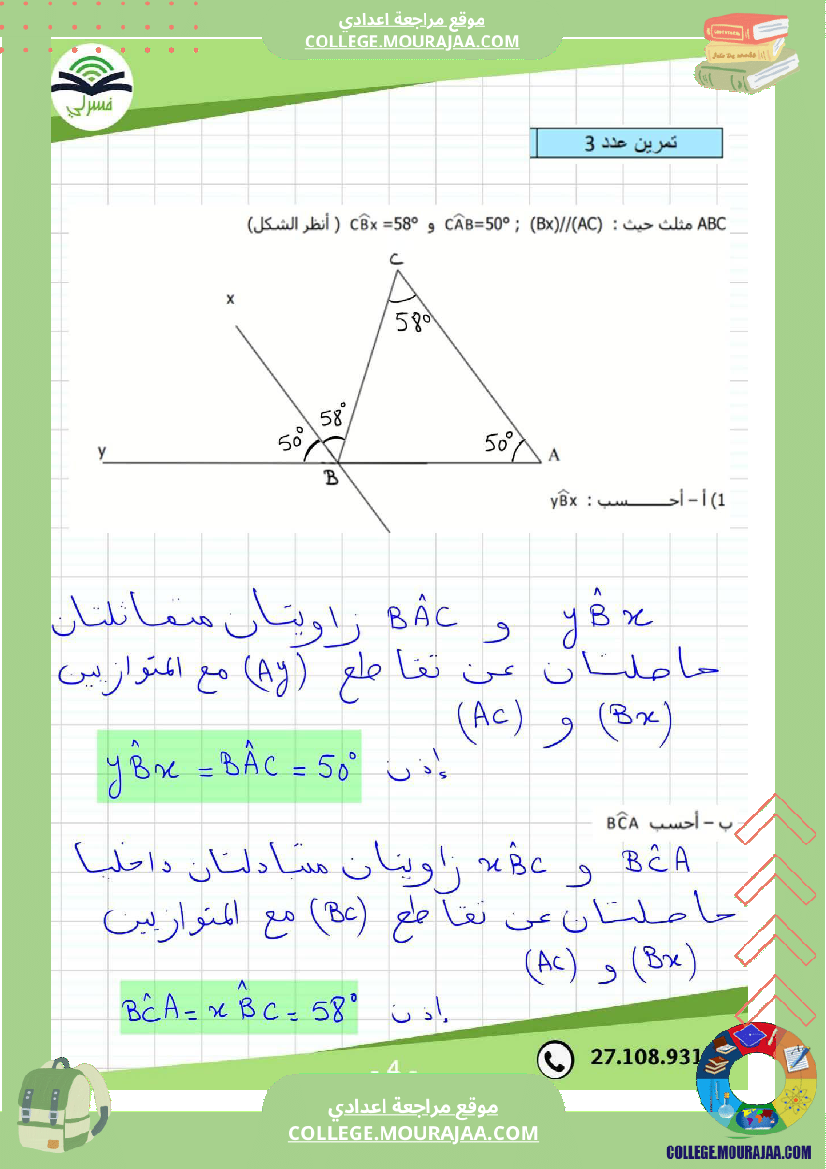 موقع مراجعة اعدادي
COLLEGE.MOURAJAA.COM
فسرلي
تمرين عدد 3
ABC مثلث حيث : (Bx)//(AC) ; CÂB=50° و CB̂x =58° ( أنظر الشكل)
C
x
58°
58°
50°
50°
y
A
B
1) أ – أحـــــسب : yB̂x
yB̂x و BÂC زاويتان متماثلتان
حاصلتان عن تقاطع (Ay) مع المتوازيين
(Bx) و (AC)
إذن yB̂x = BÂC = 50°
ب – أحسب BĈA
BĈA و xB̂C زاويتان متبادلتان داخليا
حاصلتان عن تقاطع (BC) مع المتوازيين
(Bx) و (AC)
إذن BĈA = xB̂C = 58°
- 4 -
27.108.931
موقع مراجعة اعدادي
COLLEGE.MOURAJAA.COM
COLLEGE.MOURAJAA.COM